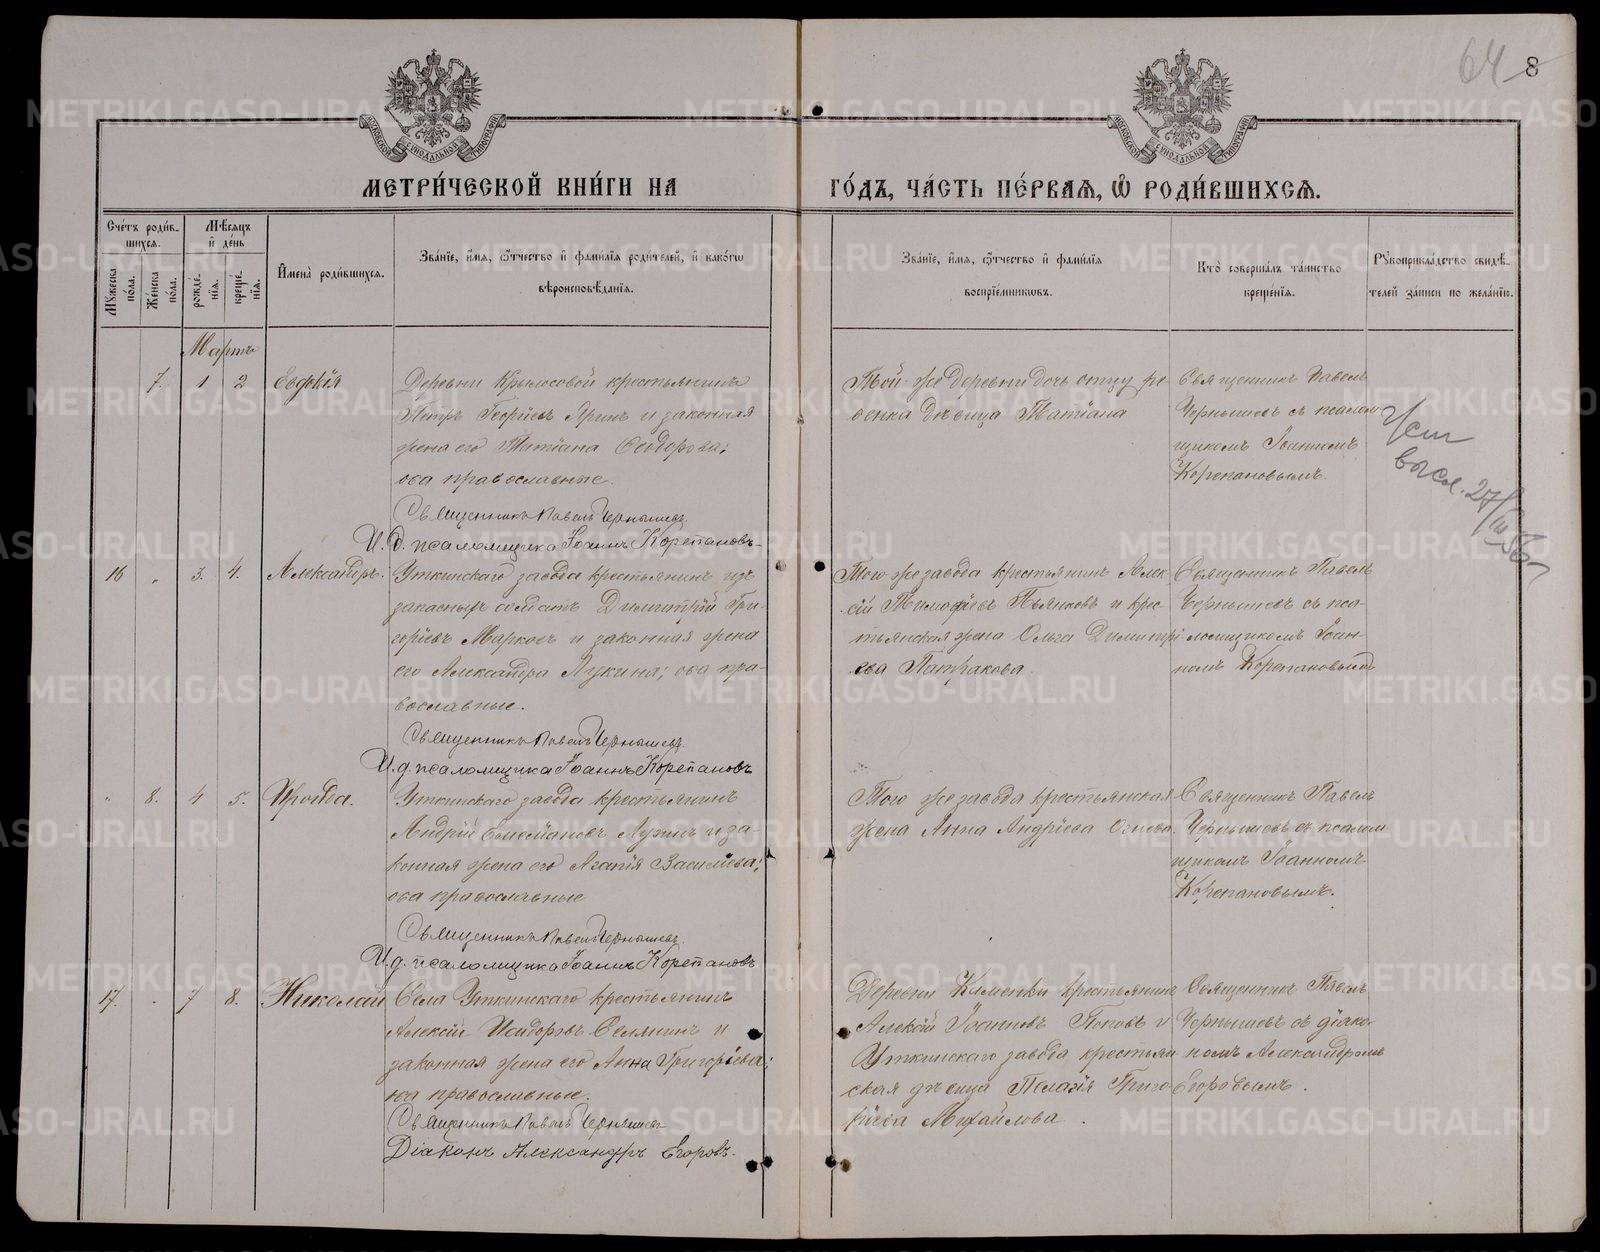 64 8
МЕТРИ́ЧЕСКОЙ КНИ́ГИ НА ГО́ДЪ, ЧА́СТЬ ПЕ́РВАѦ, Ѡ҆ РОДИ́ВШИХСѦ.
Сче́тъ роди́в-
шихсѧ.
Мꙋжеска по́ла.
Же́нска по́ла.
Мѣ́сѧцъ
и҆ де́нь
рожде́нїѧ.
креще́нїѧ.
И҆мена̀ роди́вшихсѧ.
Зва́нїе, и҆́мѧ, ѻ҆́тчество и҆ фамі́лїѧ роди́телей, и҆ како́гѡ
вѣроисповѣ́данїѧ.
Зва́нїе, и҆́мѧ, ѻ҆́тчество и҆ фамі́лїѧ
воспрїе́мникѡвъ.
Кто̀ соверша́лъ та́инство
креще́нїѧ.
Рꙋкоприкла́дство свидѣ́-
телей за́писи по жела́нїю.
Мартъ
7. 1 2 Евдокія
Деревни Крылосовой крестьянинъ
Петръ Георгіевъ Яринъ и законная
жена его Татіана Ѳеодорова;
оба православные.
Священникъ Павелъ Чернышевъ.
И. д. псаломщика Іоаннъ Корепановъ
Той-же деревни дочь отцу ре-
бенка дѣвица Татіана
Священникъ Павелъ
Чернышевъ съ псалом-
щикомъ Іоанномъ
Корепановымъ.
высл. 27/III 56
16 „ 3. 4. Александръ.
Уткинскаго завода крестьянинъ изъ
запасныхъ солдатъ Димитрій Гри-
горіевъ Марковъ и законная жена
его Александра Лукина; оба пра-
вославные.
Священникъ Павелъ Чернышевъ.
И. д. псаломщика Іоаннъ Корепановъ
Того же завода крестьянинъ Алек-
сій Тимоѳіевъ Пьянковъ и крес-
тьянская жена Ольга Димитрі
ева Патракова.
Священникъ Павелъ
Чернышевъ съ пса-
ломщикомъ Іоан-
номъ Корепановымъ
„ 8. 4 5. Ироида.
Уткинскаго завода крестьянинъ
Андрій Лузинъ и за-
конная жена его Агапія Василіева;
оба православные
Священникъ Павелъ Чернышевъ.
И. д. псаломщика Іоаннъ Корепановъ
Того же завода крестьянская
жена Анна Андріева Огнева.
Священникъ Павелъ
Чернышевъ съ псалом
щикомъ Іоанномъ
Корепановымъ.
17. 7 8. Николай
Села Уткинскаго крестьянинъ
Алексій Исидоровъ Селянинъ и
законная жена его Анна Григоріева;
оба православные.
Священникъ Павелъ Чернышевъ
Діаконъ Александръ Егоровъ.
Деревни Каменки крестьянинъ
Алексій Іоанновъ Поповъ и
Уткинскаго завода крестьян
ская дѣвица Пелагія Григо
ріева Михайлова.
Священникъ Павелъ
Чернышевъ съ діако-
номъ Александромъ
Егоровымъ.
METRIKI.GASO-URAL.RU